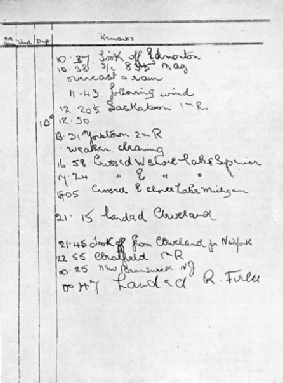 Remarks
10.37 Took off Edmonton
10.38 S/c Mag
overcast & rain
11.43 following wind
12.20½ Saskatoon 1 m R.
10° 12.50
13.31 Yorktown 2 m R
weather clearing
16.58 Crossed W shore Lake Superior
17.24 " E " "
18.05 Crossed E Lake
21.15 landed Cleveland
21.45 Took off from Cleveland for
22.55 1 m R
00.25 New Brunswick NJ
00.47 Landed